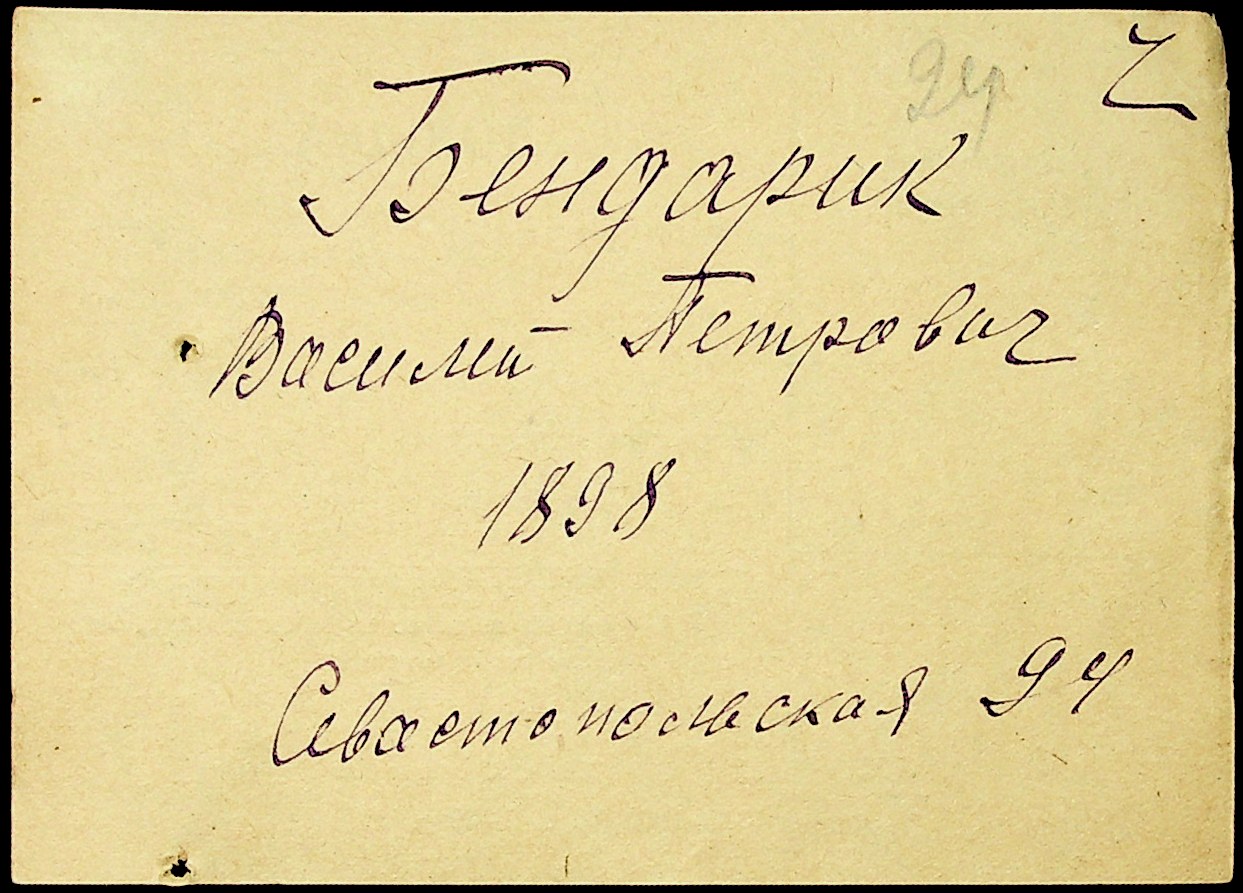 Бендарик
Василий Петрович
1898
Севастопольская 94